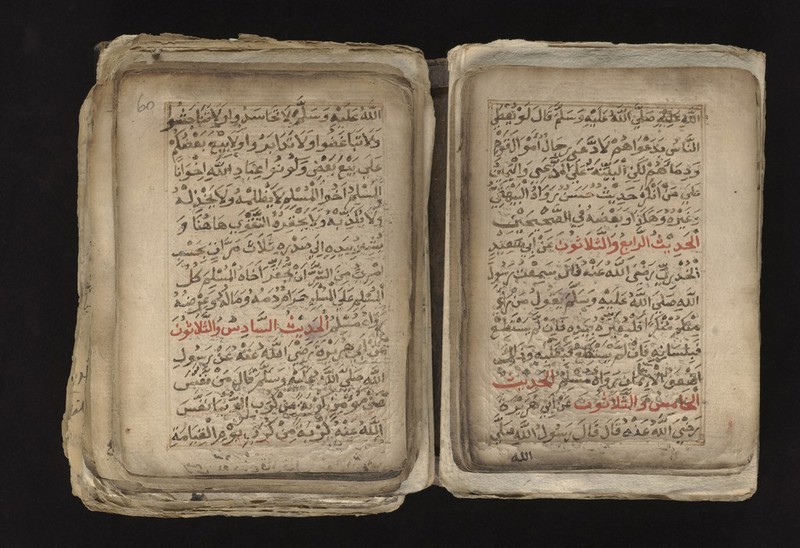 الله عليه صلى الله عليه وسلم قال لو يعطى
الناس بدعواهم لادعى رجال اموال قوم
ودماءهم لكن البينة على المدعى واليمين
على من انكر حديث حسن رواه البيهقي
وغيره هكذا وبعضه في الصحيحين
الحديث الرابع والثلاثون عن ابي سعيد
الخدري رضي الله عنه قال سمعت رسول
الله صلى الله عليه وسلم يقول من راى
منكم منكرا فليغيره بيده فان لم يستطع
فبلسانه فان لم يستطع فبقلبه وذلك
اضعف الايمان رواه مسلم الحديث
الخامس والثلاثون عن ابي هريرة
رضي الله عنه قال قال رسول الله صلى
الله
60
الله عليه وسلم لا تحاسدوا ولا تناجشوا
ولا تباغضوا ولا تدابروا ولا يبيع بعضكم
على بيع بعض وكونوا عباد الله اخوانا
المسلم اخوا المسلم لا يظلمه ولا يخذله
ولا يكذبه ولا يحقره التقوى هاهنا و
يشير بيده الى صدره ثلاث مرات بحسب
امرئ من الشر ان يحقر اخاه المسلم كل
المسلم على المسلم حرام دمه وماله وعرضه
رواه مسلم الحديث السادس والثلاثون
عن ابي هريرة رضي الله عنه عن رسول
الله صلى الله عليه وسلم قال من نفس
عن مؤمن كربة من كرب الدنيا نفس
الله عنه كربة من كرب يوم القيامة